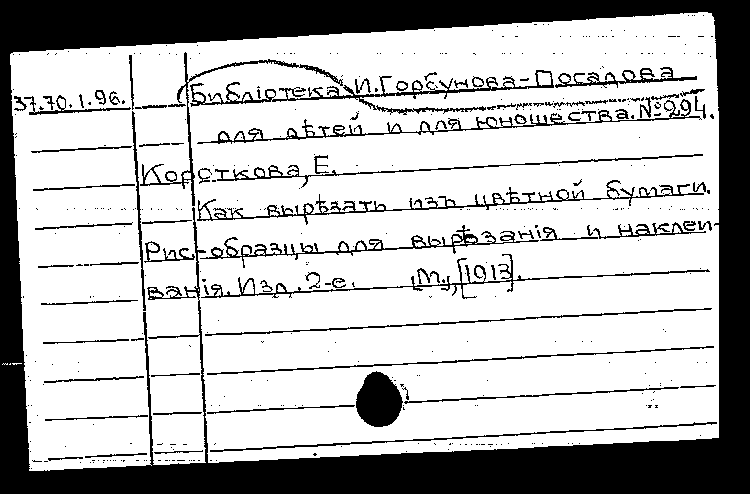 37.70.1.96. Библіотека И.Горбунова-Посадова
для дѣтей и для юношества. №294.
Короткова, Е.
Как вырѣзать изъ цвѣтной бумаги.
Рис-образцы для вырѣзанія и наклеи-
ванія. Изд. 2-е. М., [1913].